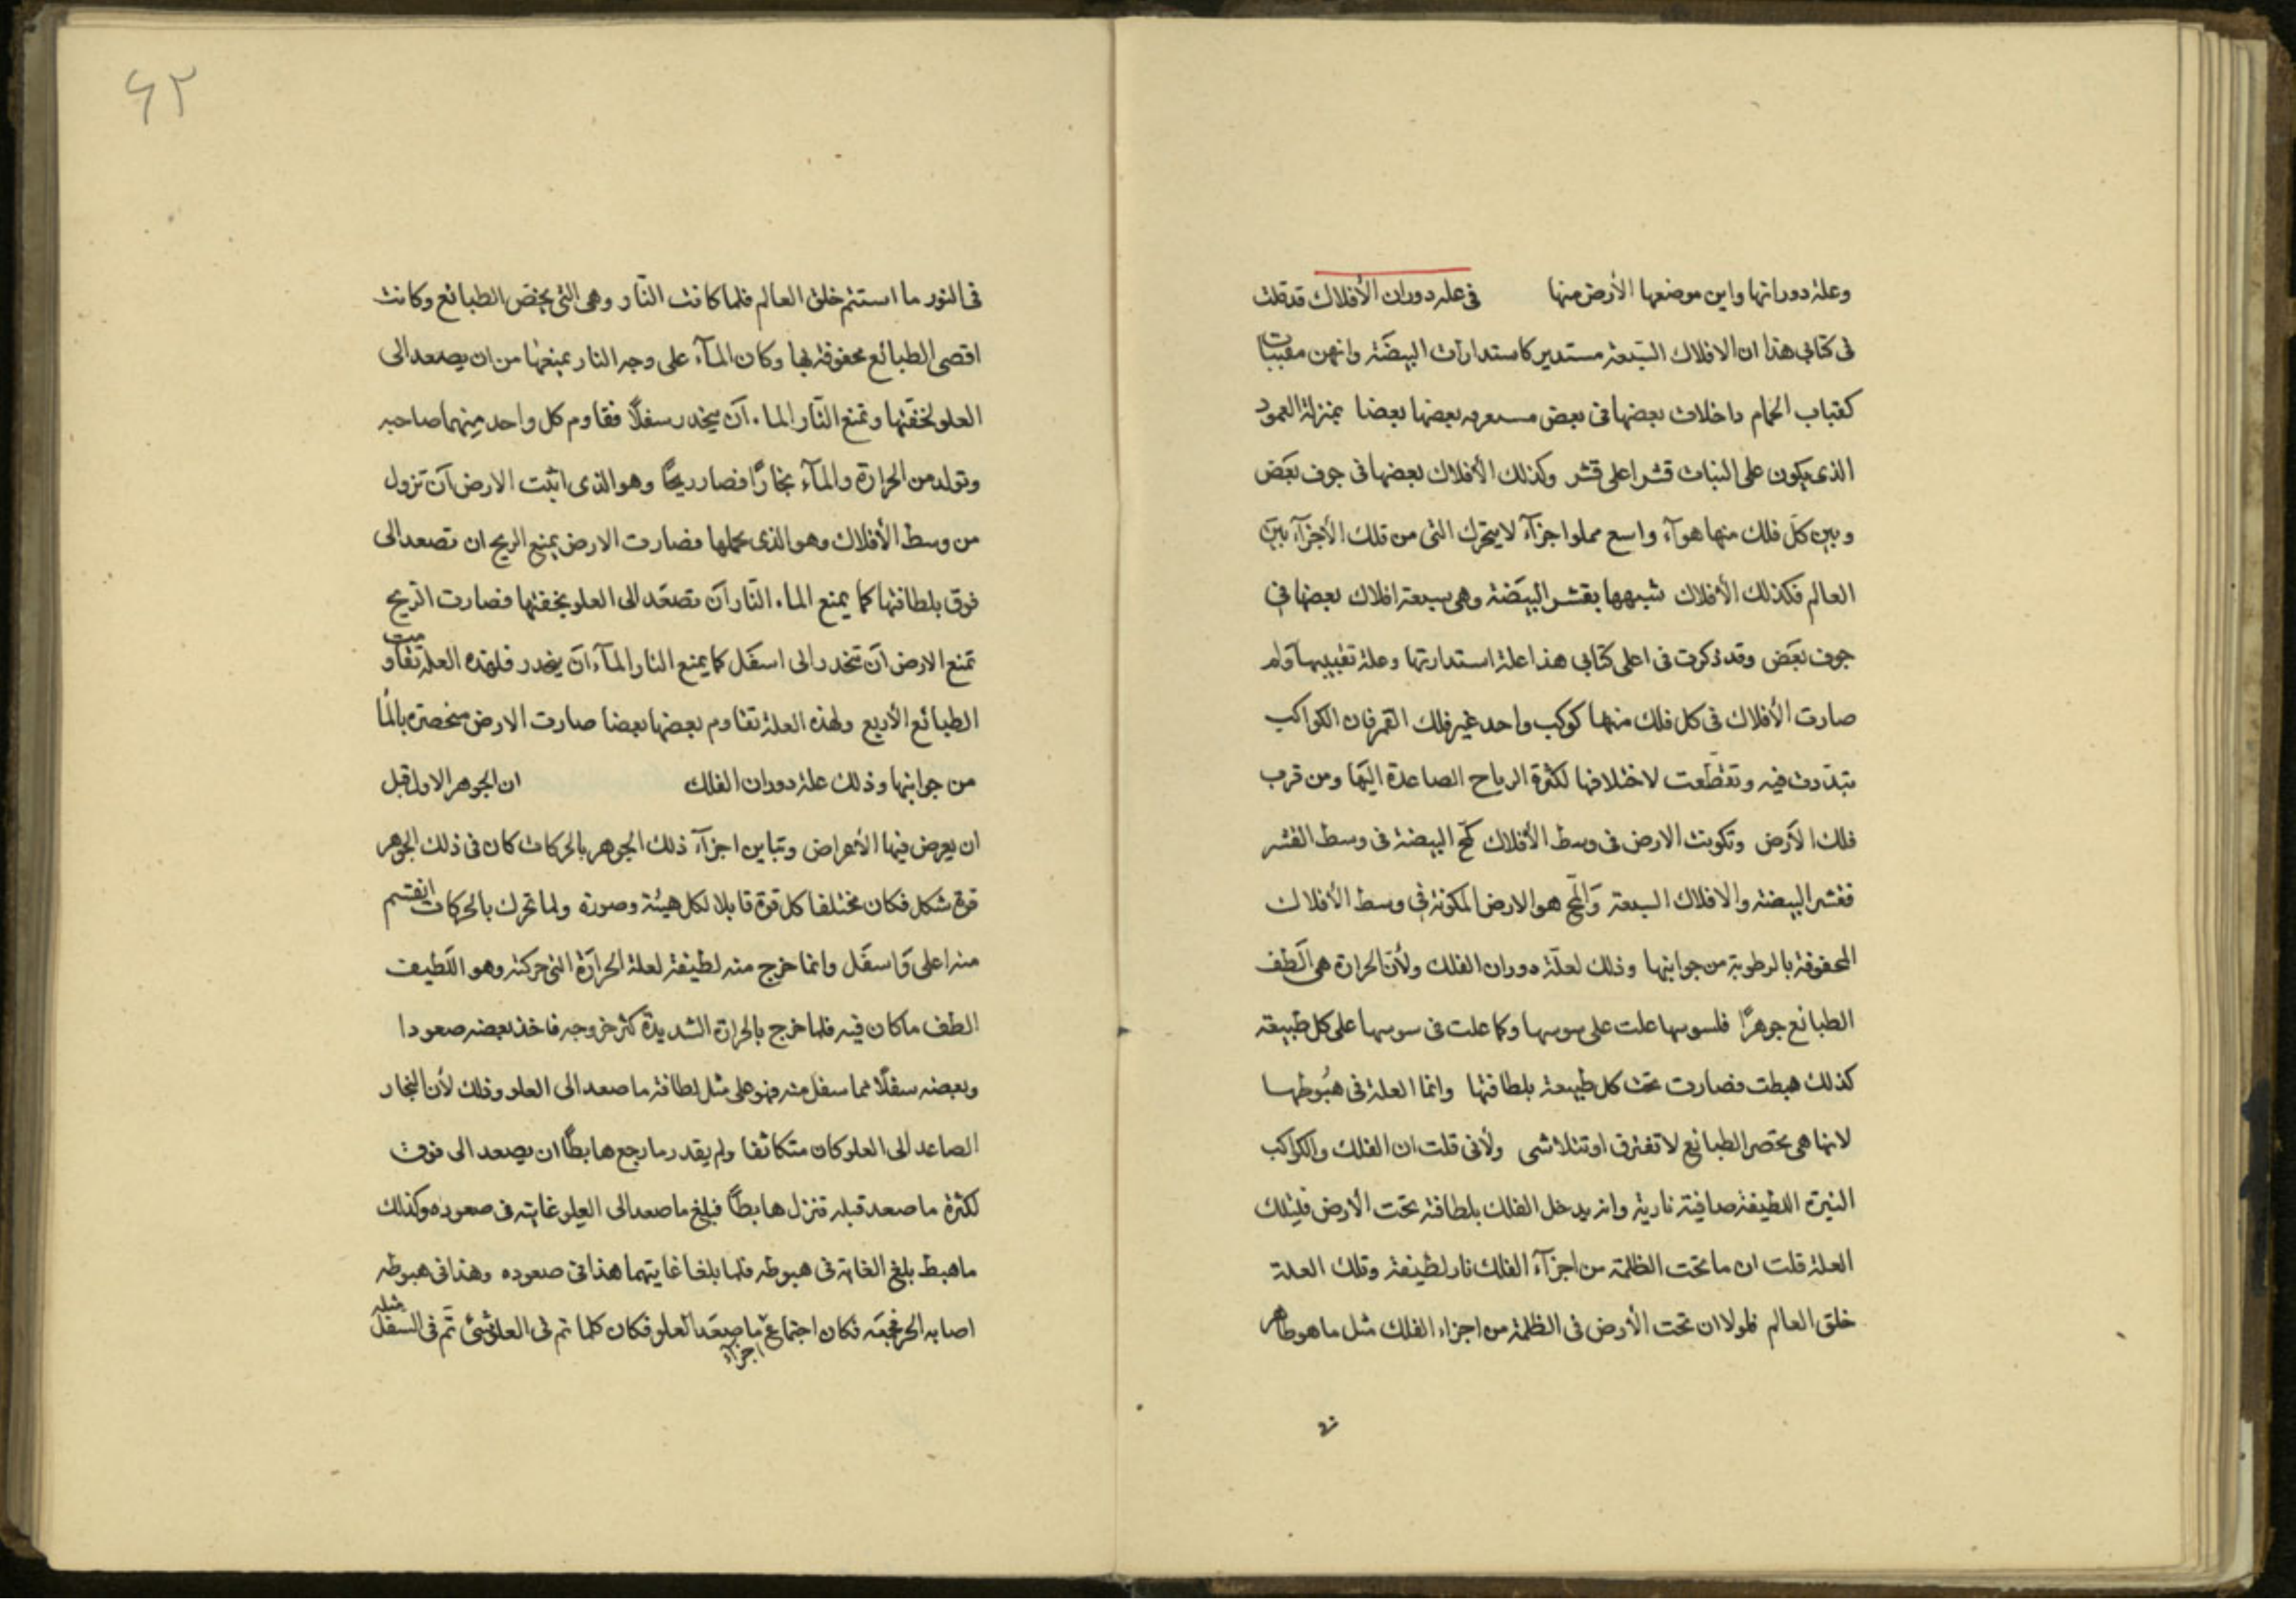 وعلة دورانها واين موضعها الأرض منها في علة دوران الأفلاك قد قلت
فى كتابى هذا ان الافلاك السبعة مستدير كاستدارات البيضة وانهن مقببات
كقباب الحمام داخلات بعضها فى بعض بعضها بعضا بمنزلة العمود
الذى يكون على النبات قشرا على قشر وكذلك الأفلاك بعضها فى جوف بعض
وبين كل فلك منها هوآء واسع مملوا اجزآء لا يتحرك التى من تلك الأجزآء بين
العالم فكذلك الأفلاك شبهها بقشر البيضة وهى سبعة افلاك بعضها في
جوف بعض وقد ذكرت فى اعلى كتابي هذا علة استدارتها وعلة تقبيبها ولم
صارت الأفلاك فى كل فلك منها كوكب واحد غير فلك القمر فان الكواكب
تبددت فيه وتقطعت لاختلافها لكثرة الرياح الصاعدة اليها ومن قرب
فلك الأرض وتكونت الارض فى وسط الأفلاك كمح البيضة فى وسط القشر
فقشر البيضة والافلاك السبعة والمح هو الارض المكونة في وسط الأفلاك
المحفوفة بالرطوبة من جوانبها وذلك لعلة دوران الفلك ولأن الحرارة هى الطف
الطبائع جوهرًا فلسوسها علت على سوسها وكما علت فى سوسها على كل طبيعة
كذلك هبطت فصارت تحت كل طبيعة بلطافتها وانما العلة فى هبوطها
لانها هى تحصر الطبائع لا تفترق او تتلاشى ولأنى قلت ان الفلك والكواكب
النيرة اللطيفة صافية نارية وانه يدخل الفلك بلطافته تحت الأرض فلتلك
العلة قلت ان ما تحت الظلمة من اجزآء الفلك نار لطيفة وتلك العلة
خلق العالم فلولا ان تحت الأرض فى الظلمة من اجزاء الفلك مثل ما هو ظاهر
فى
٤٢
فى النور ما استتم خلق العالم فلما كانت النار وهى التى تحض الطبائع وكانت
اقصى الطبائع محفوفة بها وكان المآء على وجه النار يمنعها من ان يصعد الى
العلو لخفتها وتمنع النار الماء ان ينحدر سفلًا فقاوم كل واحد منهما صاحبه
وتولد من الحرارة والمآء بخارًا فصار ريحًا وهو الذى اثبت الارض ان تزول
من وسط الأفلاك وهو الذى يحملها فصارت الارض يمنع الريح ان تصعد الى
فوق بلطافتها كما يمنع الماء النار ان تصعد الى العلو بخفتها فصارت الريح
تمنع الارض ان تنحدر الى اسفل كما يمنع النار المآء ان ينحدر فلهذه العلة تقاومت
الطبائع الأربع ولهذه العلة تقاوم بعضها بعضا صارت الارض منحصرة بالما
من جوانبها وذلك علة دوران الفلك ان الجوهر الاول قبل
ان يعرض فيها الأعراض وتباين اجزآء ذلك الجوهر بالحركات كان فى ذلك الجوهر
قوة شكل فكان مختلفا كل قوة قابلا لكل هيئة وصورة ولما تحرك بالحركات انقسم
منه اعلى واسفل وانما خرج منه لطيفة لعلة الحرارة التى حركته وهو اللطيف
الطف ما كان فيه فلما خرج بالحرارة الشديدة كثر خروجه فاخذ بعضه صعودا
وبعضه سفلًا فما سفل منه فهو على مثل لطافة ما صعد الى العلو وذلك لأن البخار
الصاعد الى العلو كان متكاثفا ولم يقدر ما رجع هابطًا ان يصعد الى فوق
لكثرة ما صعد قبله فنزل هابطًا فبلغ ما صعد الى العلو غايته فى صعوده وكذلك
ما هبط بلغ الغاية فى هبوطه فلما بلغا غايتهما هذا فى صعوده وهذا فى هبوطه
اصابه الحر فكان اجتماع اجزآء ما صعد العلو فكان كلما تم فى العلو شئ تم فى السفل مثله